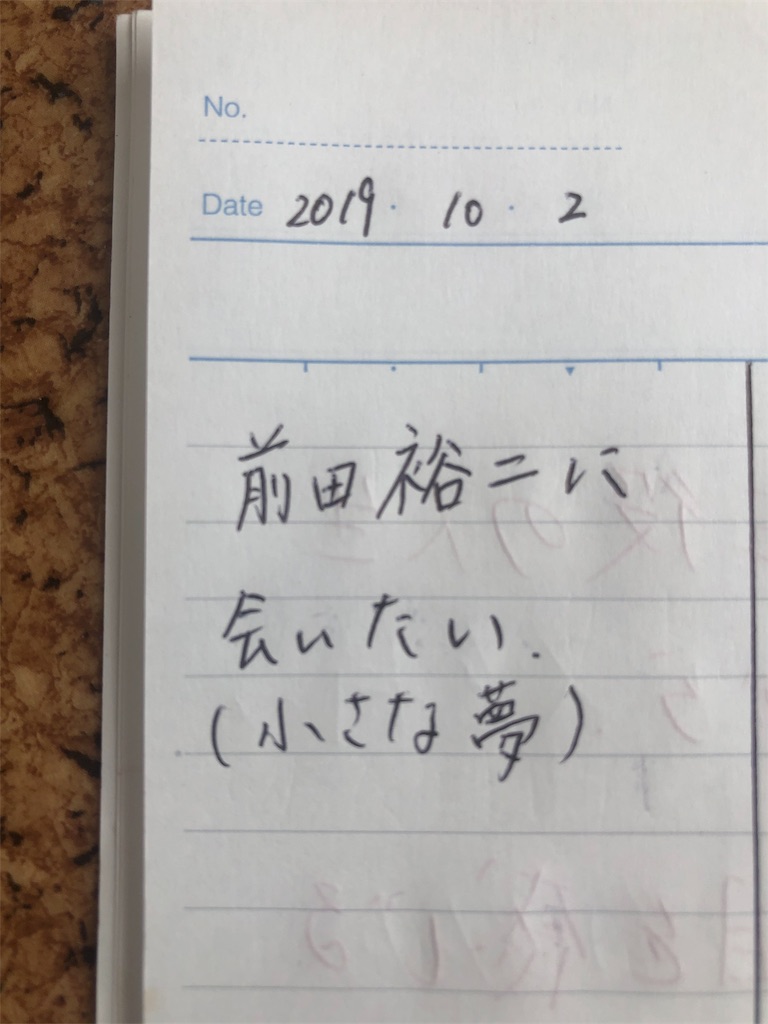 No.
Date 2019. 10. 2
前田裕二に
会いたい.
(小さな夢)